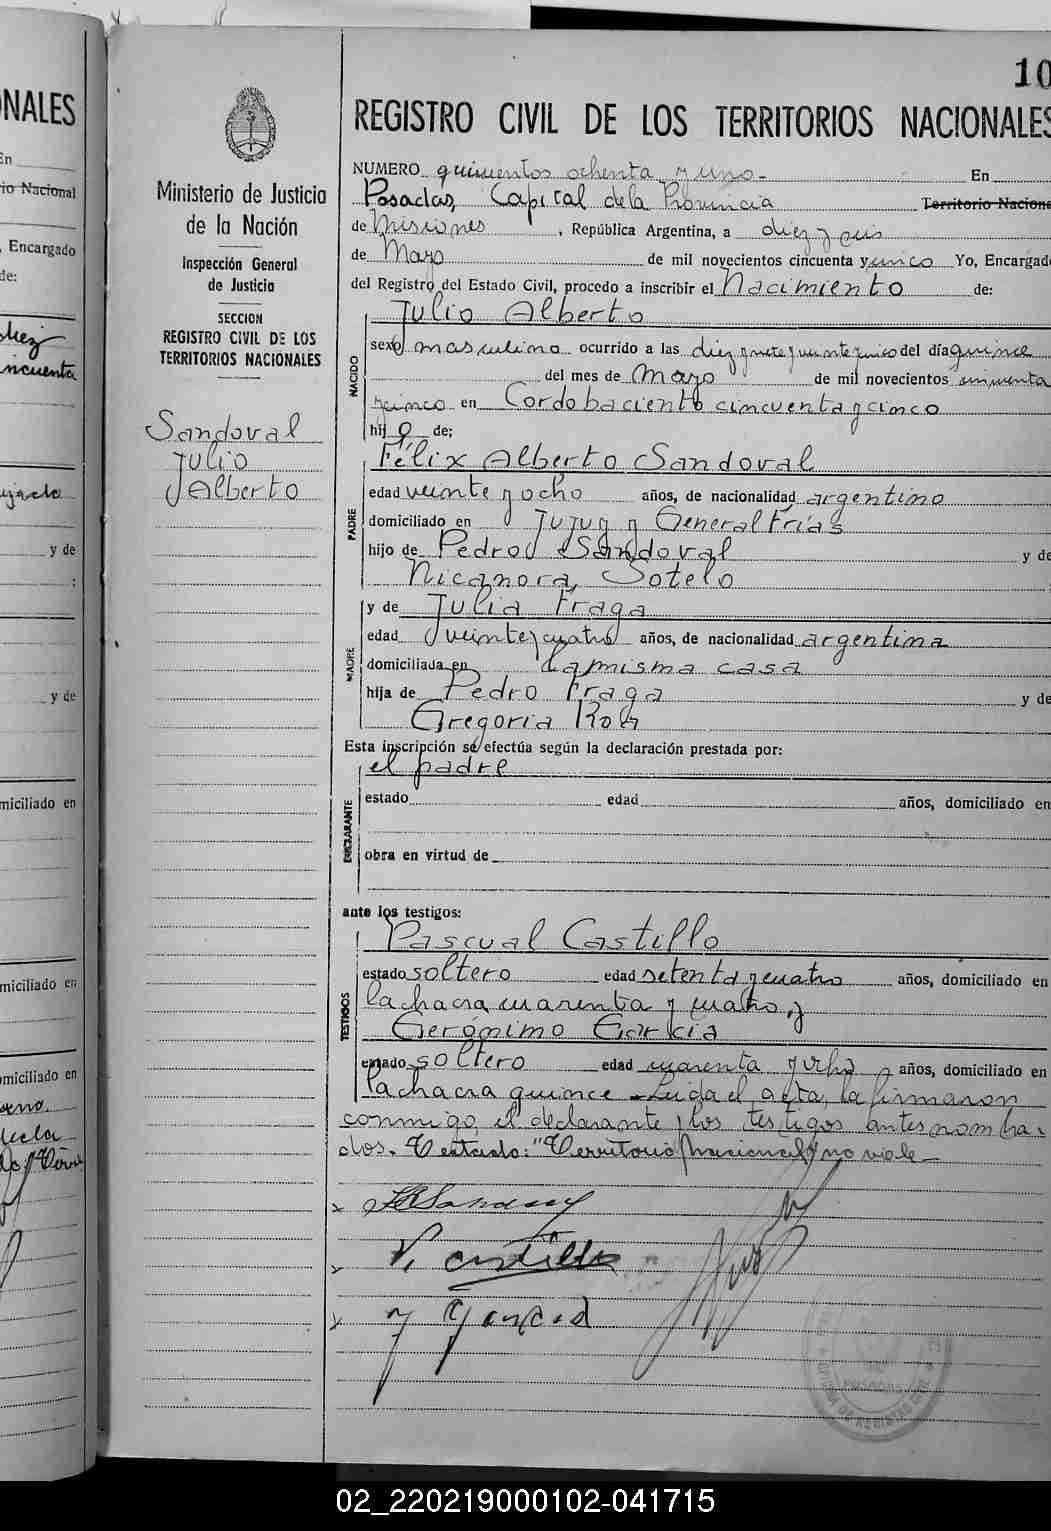 10
NALES
REGISTRO CIVIL DE LOS TERRITORIOS NACIONALES
En
io Nacional
, Encargado
de:
diez
incuenta
y de
;
y de
miciliado en
miciliado en
omiciliado en
Ministerio de Justicia
de la Nación
Inspección General
de Justicia
SECCION
REGISTRO CIVIL DE LOS
TERRITORIOS NACIONALES
Sandoval
Julio
Alberto
NUMERO quinientos ochenta y uno - En
Posadas, Capital de la Provincia Territorio Naciona
de Misiones , República Argentina, a diez y seis
de Mayo de mil novecientos cincuenta y cinco Yo, Encargad
del Registro del Estado Civil, procedo a inscribir el Nacimiento de:
NACIDO
Julio Alberto
sexo masculino ocurrido a las diez y siete y veinte y cinco del día quince
del mes de Mayo de mil novecientos cincuenta
y cinco en Cordoba ciento cincuenta y cinco
hijo de;
PADRE
Félix Alberto Sandoval
edad veinte y ocho años, de nacionalidad argentino
domiciliado en Jujuy y General Frías
hijo de Pedro Sandoval y de
Nicanora Sotelo
MADRE
y de Julia Fraga
edad veinte y cuatro años, de nacionalidad argentina
domiciliada en la misma casa
hija de Pedro Fraga y de
Gregoria
Esta inscripción se efectúa según la declaración prestada por:
DECLARANTE
el padre
estado edad años, domiciliado en
obra en virtud de
ante los testigos:
TESTIGOS
Pascual Castillo
estado soltero edad setenta y cuatro años, domiciliado en
la chacra cuarenta y cuatro, y
Gerónimo Garcia
estado soltero edad cuarenta y ocho años, domiciliado en
la chacra quince - Leida el acta, la firmaron
conmigo, el declarante y los testigos antes nombra-
dos. Testado: "Territorio Nacional" no vale -
Sandoval
P. Castillo
POSADAS
02_220219000102-041715